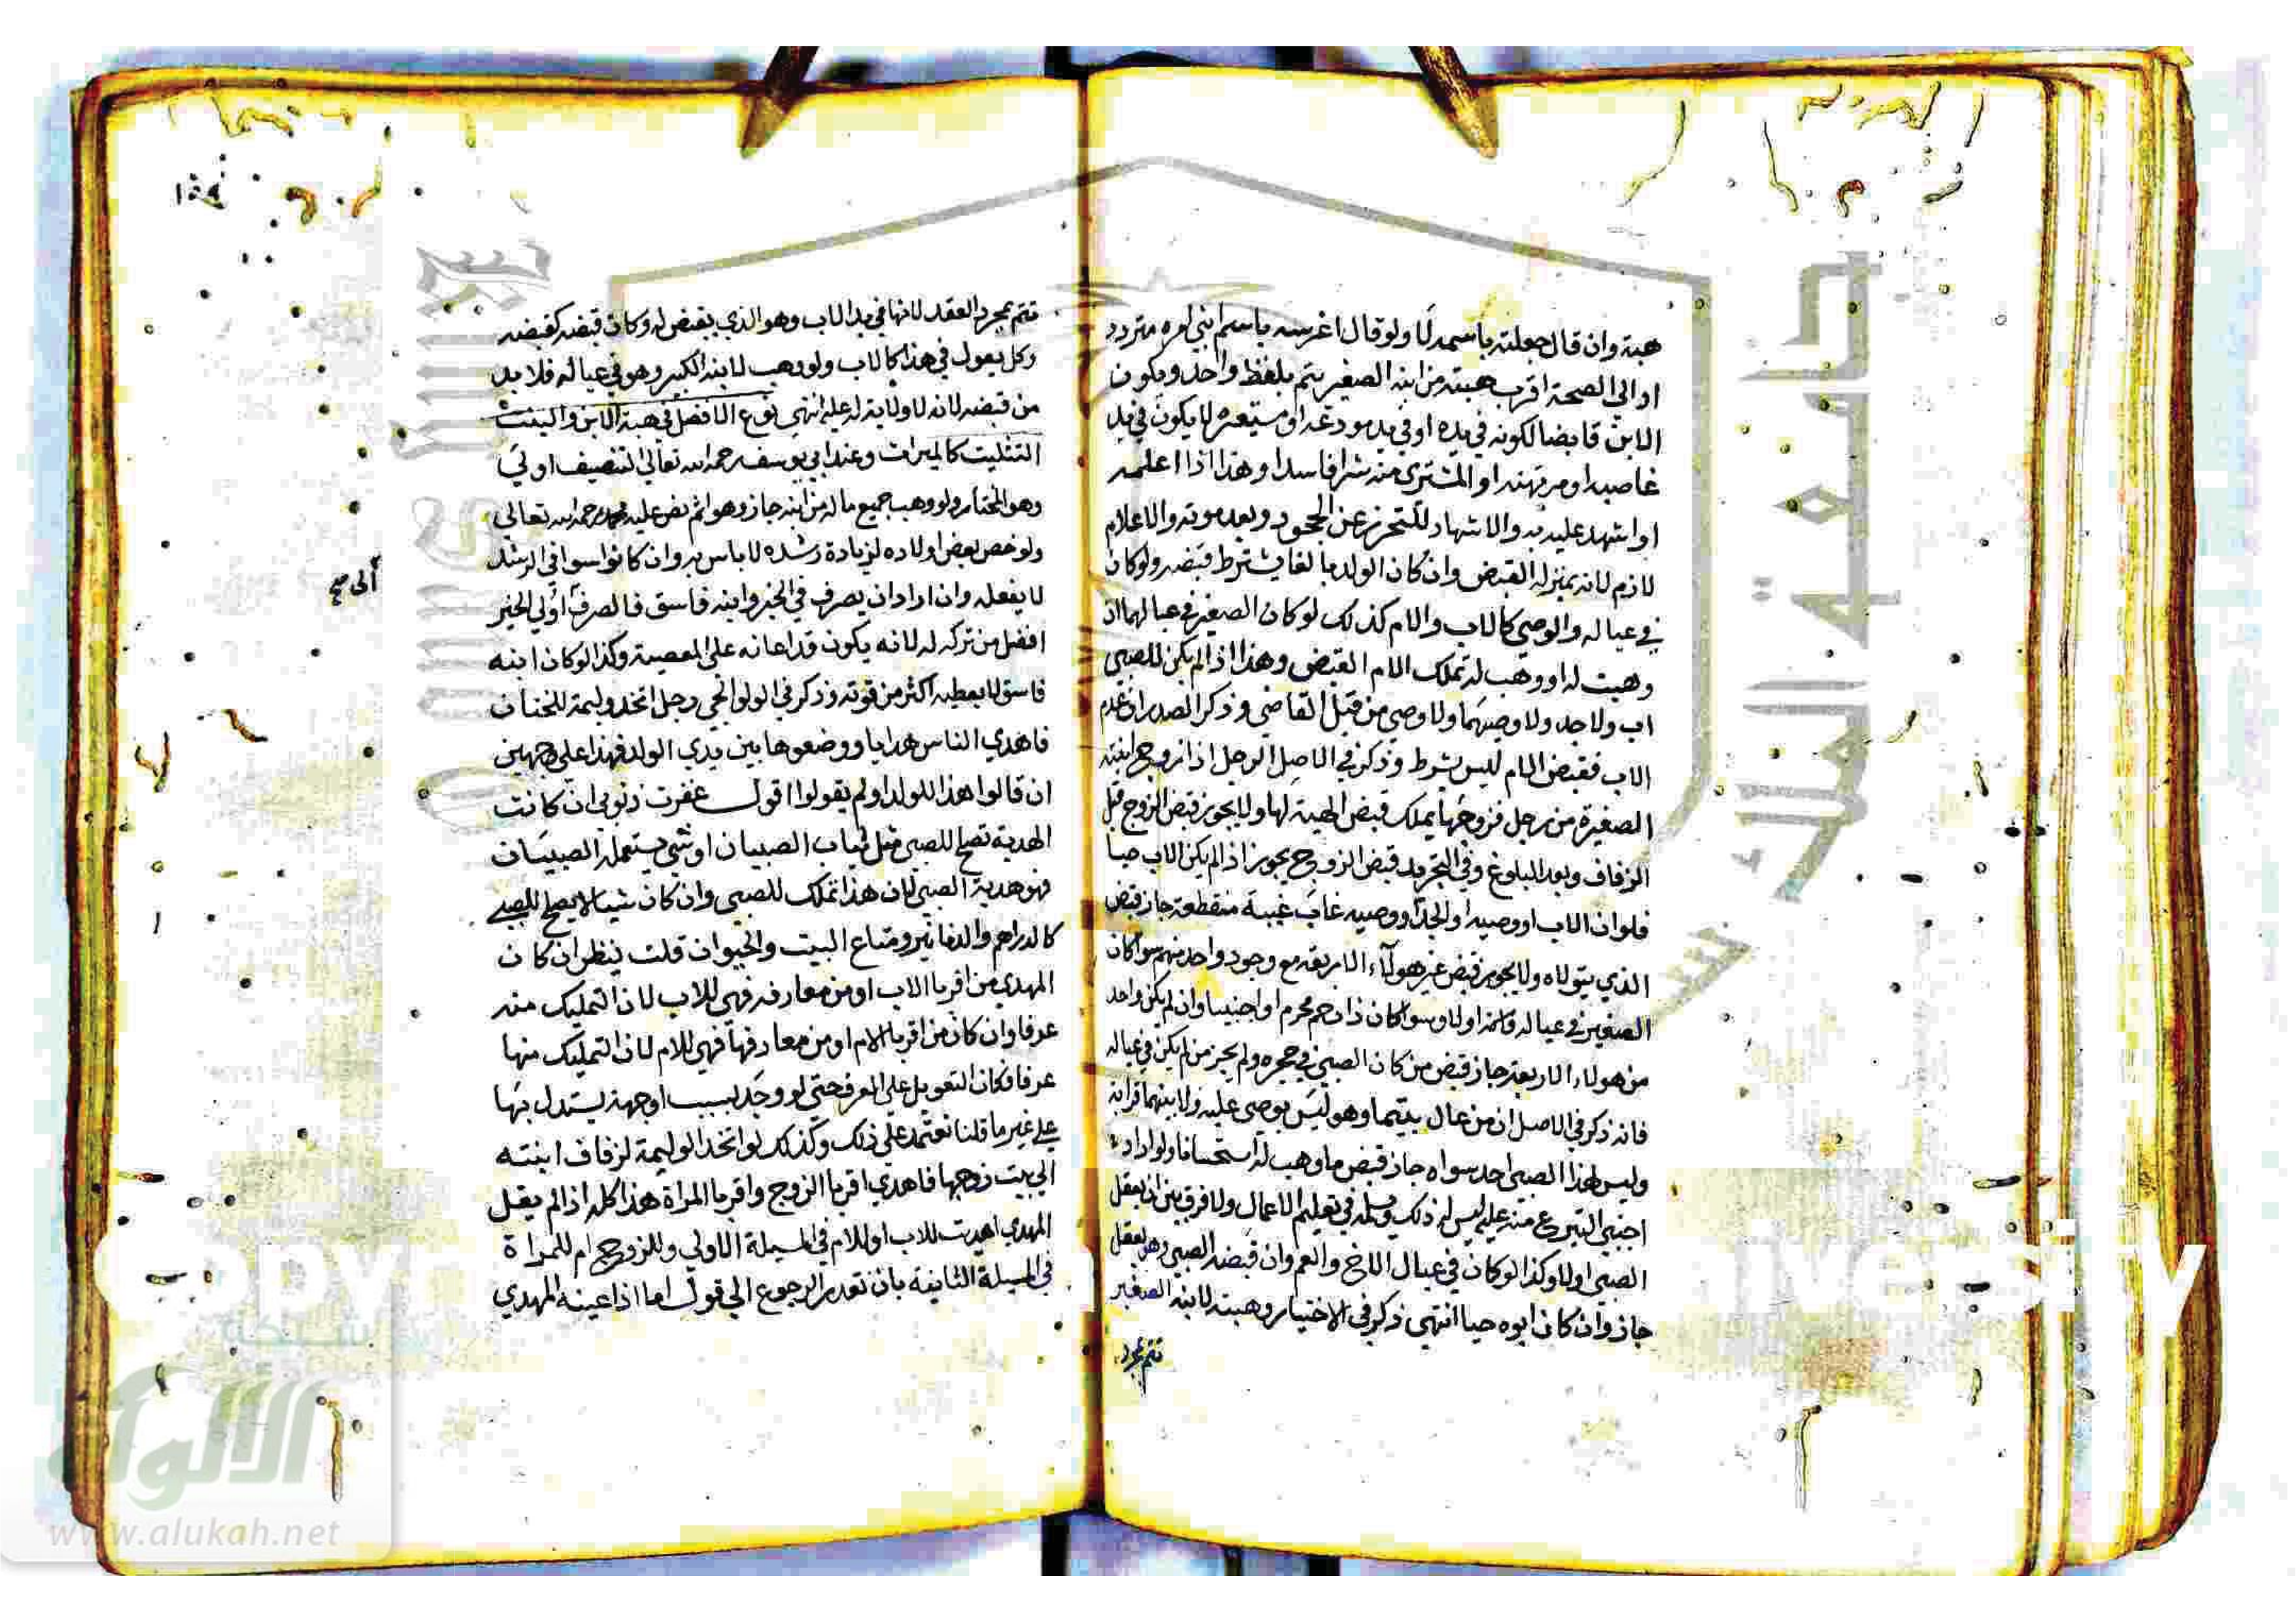 هبة وان قال جعلته باسمه لا ولو قال اغرسه باسم ابني امره متردد
او الى الصحة اقرب هبته من ابنه الصغير يتم بلفظ واحد ويكون
الابن قابضا لكونه في يده او في يد مودعه او مستعيره لا يكون في يد
غاصبه او مرتهنه او المشتري منه شرا فاسدا وهذا اذا اعلمه
او اشهد عليه به والاشهاد للتحرز عن الجحود وبعد موته والاعلام
لازم لانه بمنزلة القبض وان كان الولد بالغا يشترط قبضه ولو كان
في عياله والوصي كالاب والام كذلك لو كان الصغير في عيالهما ان
وهبت له او وهب له تملك الام القبض وهذا اذا لم يكن للصبي
اب ولا جد ولا وصيهما ولا وصي من قبل القاضي وذكر الصدر ان عدم
الاب فقبض الام ليس بشرط وذكر في الاصل الرجل اذا زوج ابنته
الصغيرة من رجل فزوجها يملك قبض الهبة لها ولا يجوز قبض الزوج قبل
الزفاف وبعد البلوغ وفي التجريد قبض الزوج يجوز اذا لم يكن الاب حيا
فلو ان الاب او وصيه او الجد او وصيه غاب غيبة منقطعة جاز قبض
الذي يتولاه ولا يجوز قبض غير هولآء الاربعة مع وجود واحد منهم سوا كان
الصغير في عياله او لا وسوا كان ذا رحم محرم او اجنبيا وان لم يكن واحد
من هولاء الاربعة جاز قبض من كان الصبي في حجره ولم يجز من لم يكن في عياله
فانه ذكر في الاصل ان من عال يتيما وهو ليس بوصي عليه ولا بينهما قرابة
وليس لهذا الصبي احد سواه جاز قبض ما وهب له استحسانا ولو اراد
اجنبي النزع منه عليه ليس له ذلك ويسلمه في تعليم الاعمال ولا فرق بين ان يعقل
الصبي او لا وكذا لو كان في عيال الاخ والعم وان قبضه الصبي وهو يعقل
جاز وان كان ابوه حيا انتهى ذكر في الاختيار وهبته لابنه الصغير
تتم بمجرد
تتم بمجرد العقد لانها في يد الاب وهو الذي يقبض له وكان قبضه كقبضه
وكل يعول في هذا كالاب ولو وهب لابنه الكبير وهو في عياله فلا بد
من قبضه لانه لا ولاية له عليه انتهى نوع الافضل في هبة الابن والبنت
التثليث كالميراث وعند ابي يوسف رحمه الله تعالى التنصيف اولى
وهو المختار ولو وهب جميع ماله من ابنه جاز وهو اثم نص عليه محمد رحمه الله تعالى
ولو خص بعض اولاده لزيادة رشده لا باس به وان كانوا سوا في الرشد
لا يفعله وان اراد ان يصرف في الخير وابنه فاسق فالصرف اولي الخير
الى صح
افضل من تركه له لانه يكون قد اعانه على المعصية وكذا لو كان ابنه
فاسق لا يعطيه اكثر من قوته وذكر في الولوالجي رجل اتخذ وليمة للختان
فاهدي الناس هدايا ووضعوها بين يدي الولد فهذا على وجهين
ان قالوا هذا للولد او لم يقولوا اقول غفرت ذنوبي ان كانت
الهدية تصلح للصبي مثل ثياب الصبيان او شي يستعمله الصبيان
فهو هدية الصبي لان هذا تملك للصبي وان كان شيا لا يصلح للصبي
كالدراهم والدنانير ومتاع البيت والحيوان قلت ينظر ان كان
المهدي من اقربا الاب او من معارفه فهي للاب لان التمليك منه
عرفا وان كان من اقربا الام او من معارفها فهي للام لان التمليك منها
عرفا فكان التعويل على العرف حتى لو وجد بسبب او جهة يستدل بها
على غير ما قلنا نعتمد على ذلك وكذلك لو اتخذ الوليمة لزفاف ابنته
الي بيت زوجها فاهدي اقربا الزوج واقربا المراة هذا كله اذا لم يقل
المهدي اهديت للاب او للام في المسيلة الاولي وللزوج ام للمراة
في المسيلة الثانية بان تعذر الرجوع الي قوله اما اذا عينه المهدي
الألوكة
www.alukah.net